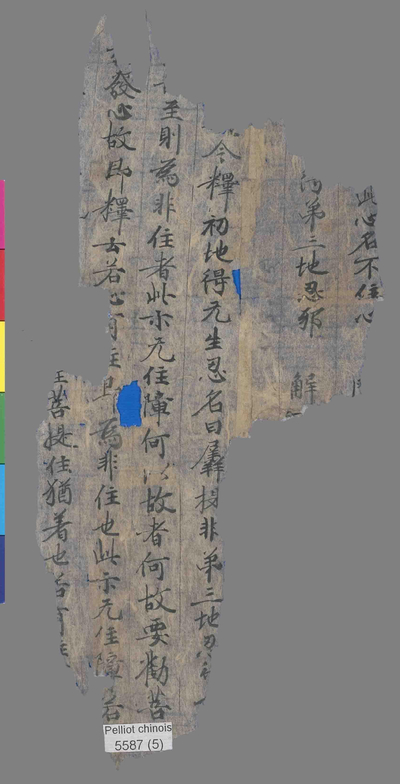 此心名不住心
的第三地忍邪 解
今釋初地得无生忍名曰羼提非第三地忍
至則為非住者此示无住障何以故者何故要勸菩
發心故即釋云若心有住即為非住也此示无住障若
菩提住猶著也
Pelliot chinois
5587 (5)